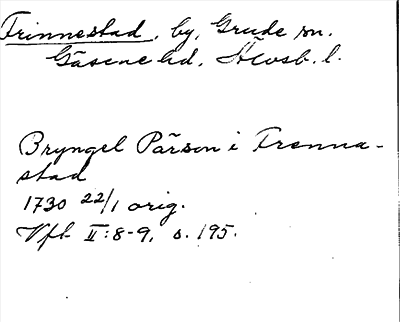 Frinnestad, by, Grude sn.
Gäsene hd, Älvsb. l.
Bryngel Pärson i Frenna-
stad
1730 22/1 orig.
Vft II:8-9, s. 195.